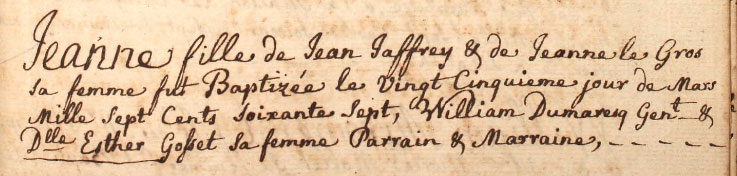 Jeanne fille de Jean Jaffrey & de Jeanne le Gros
sa femme fut Baptizée le Vingt Cinquieme jour de Mars
Mille Sept Cents Soixante Sept, William Dumaresq Gent &
Dlle Esther Gosset sa femme Parrain & Marraine, - - - - -